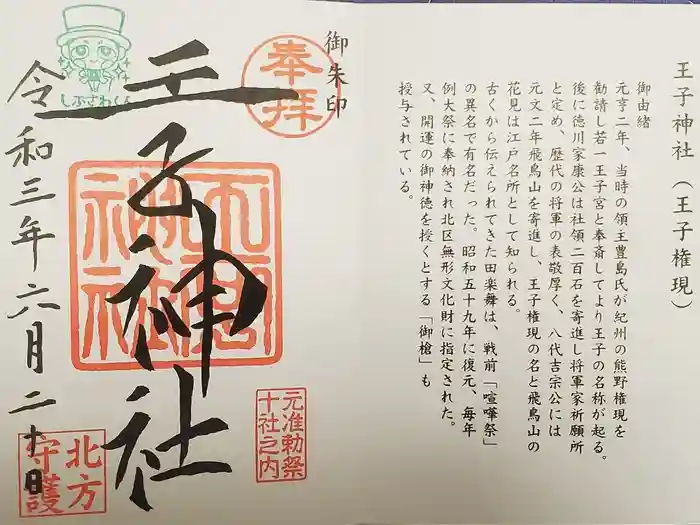 王子神社（王子権現）
御由緒
元亨二年、当時の領主豊島氏が紀州の熊野権現を
勧請し若一王子宮と奉斎してより王子の名称が起る。
後に徳川家康公は社領二百石を寄進し将軍家祈願所
と定め、歴代の将軍の表敬厚く、八代吉宗公には
元文二年飛鳥山を寄進し、王子権現の名と飛鳥山の
花見は江戸名所として知られる。
古くから伝えられてきた田楽舞は、戦前「喧嘩祭」
の異名で有名だった。昭和五十九年に復元、毎年
例大祭に奉納され北区無形文化財に指定された。
又、開運の御神徳を授くとする「御槍」も
授与されている。
御朱印
奉拝
王子神社
王子神社
元准勅祭
十社之内
しぶさわくん
令和三年六月二十日
北方
守護